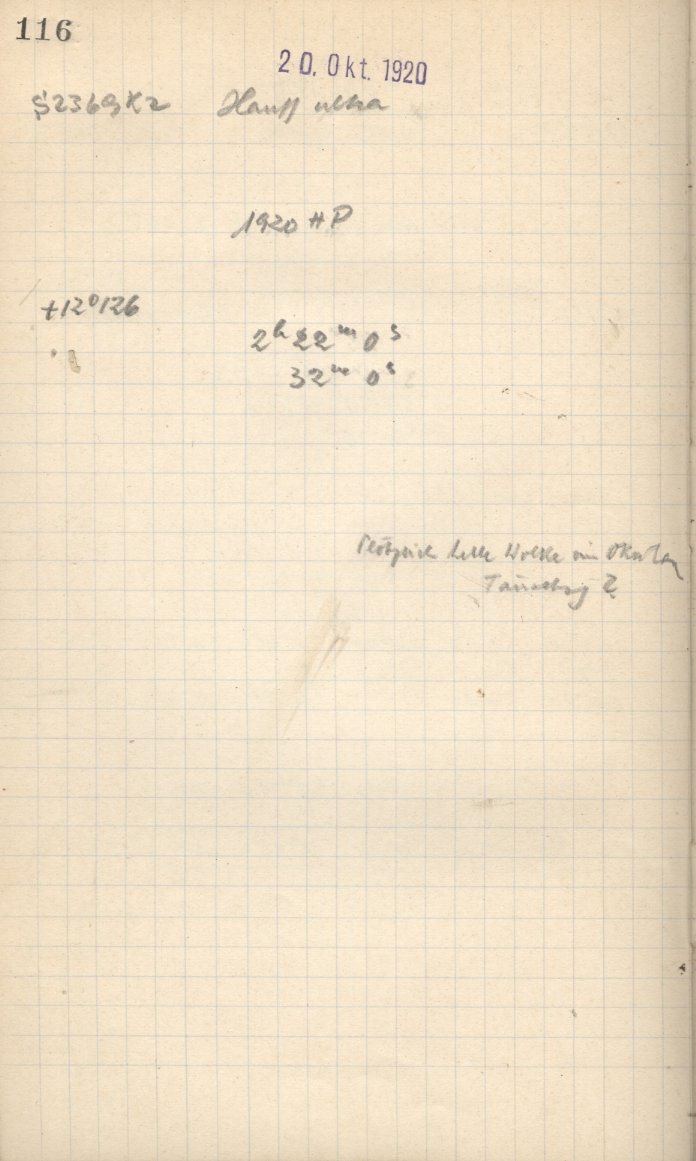 116
20. Okt. 1920
S2369K2 Hauff ultra
1920 HP
+12°126
2ʰ 22ᵐ 0ˢ
32ᵐ 0ˢ
Plötzlich helle Wolke im Okular
Täuschung?